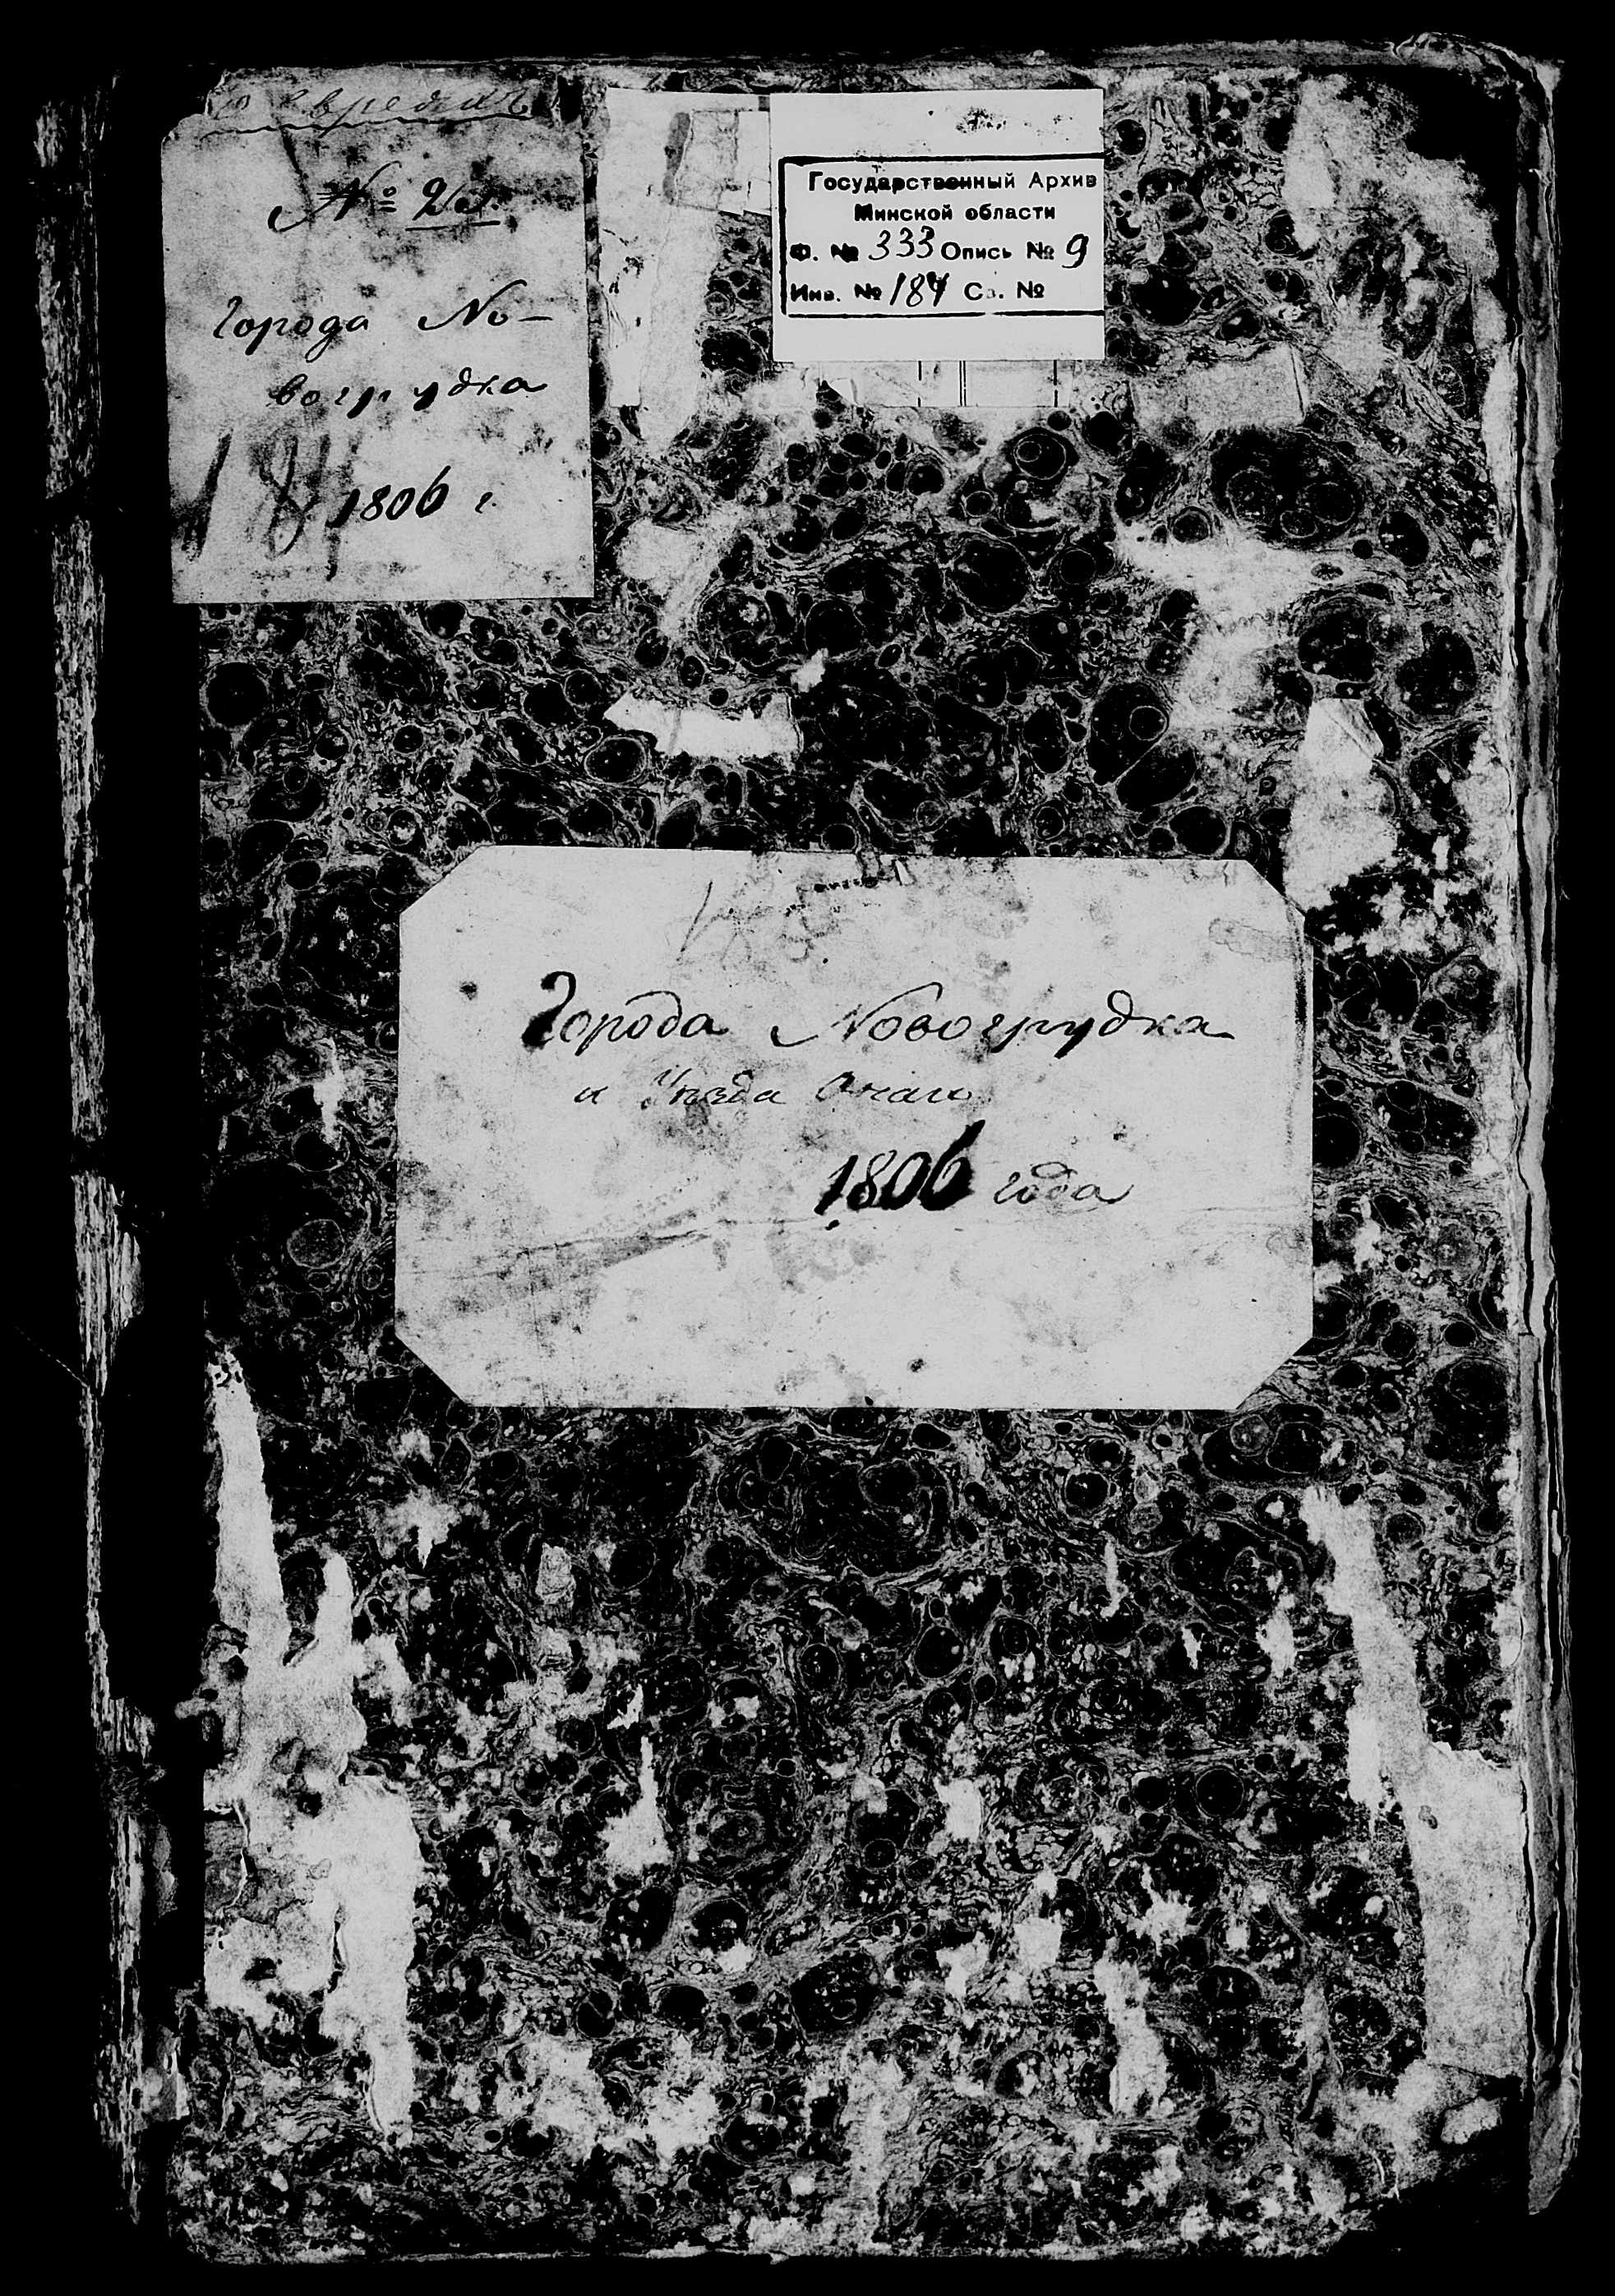 Города Но-
вогрудка
1806 г.
Государственный Архив
Минской области
Ф. № 333 Опись № 9
Инв. № 184 Св. №
Города Новогрудка
и Уѣзда
1806 года